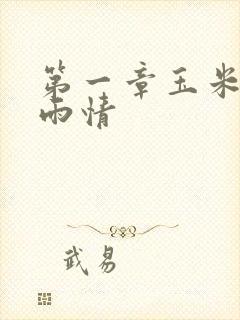 第一章玉米
雨情
武易